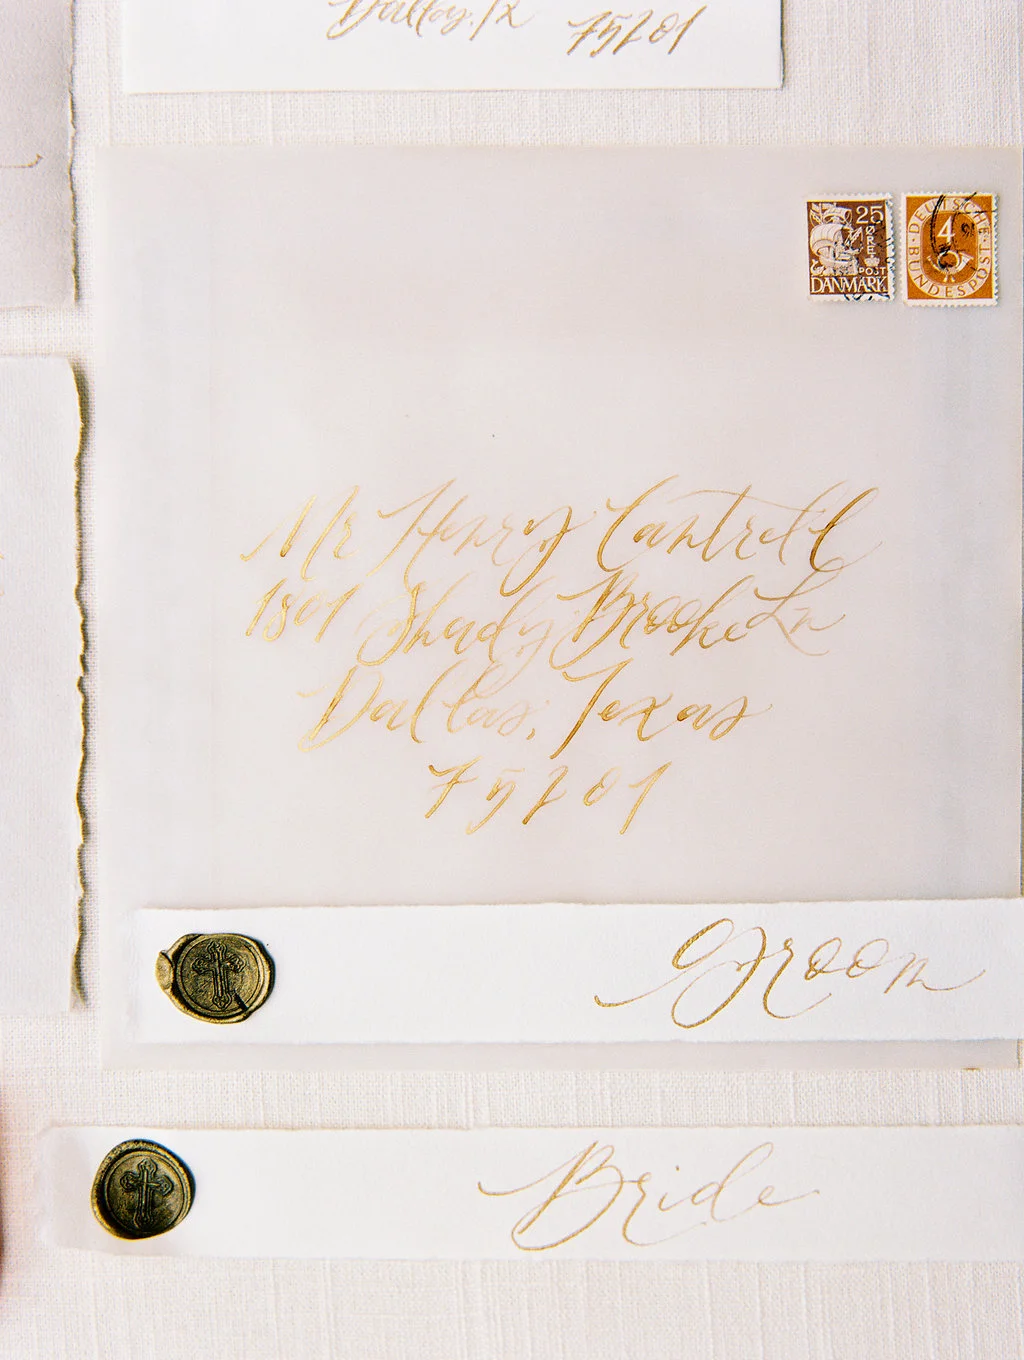 Dallas, Tx
75201
25
ØRE
POST
DANMARK
DEUTSCHE
4
BUNDESPOST
Mr Henry Cantrell
1801 Shady Brooke Ln
Dallas, Texas
75201
Groom
Bride